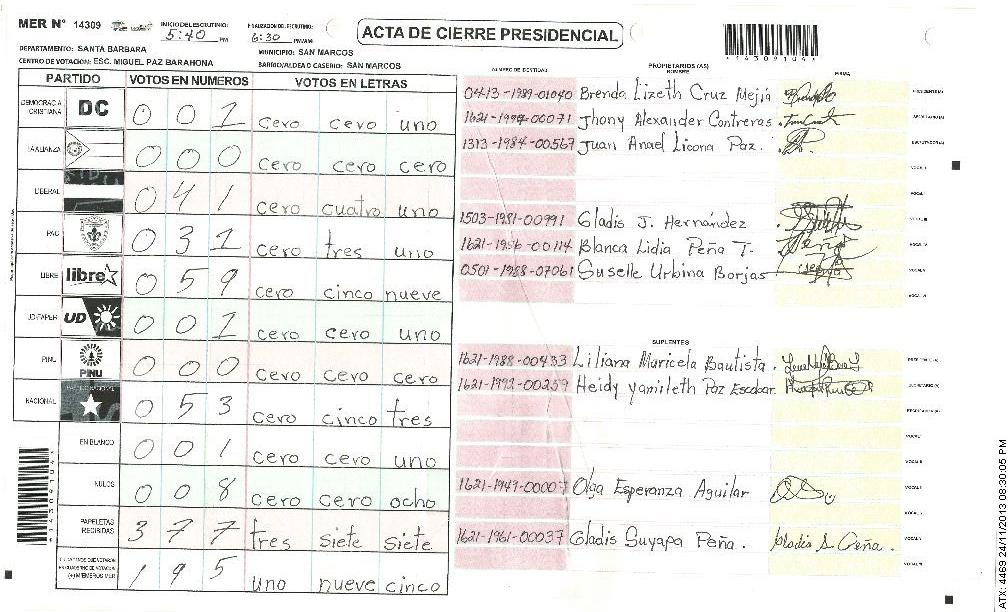 MER N° 14309
INICIO DEL ESCRUTINIO: 5:40 PM
FINALIZACION DEL ESCRUTINIO: 6:30 PM/AM
ACTA DE CIERRE PRESIDENCIAL
*14309104*
DEPARTAMENTO: SANTA BARBARA
MUNICIPIO: SAN MARCOS
CENTRO DE VOTACION: ESC. MIGUEL PAZ BARAHONA
BARRIO/ALDEA O CASERIO: SAN MARCOS
PARTIDO VOTOS EN NUMEROS VOTOS EN LETRAS
DEMOCRACIA CRISTIANA DC 0 0 1 cero cero uno
LA ALIANZA 0 0 0 cero cero cero
LIBERAL 0 4 1 cero cuatro uno
PAC 0 3 1 cero tres uno
LIBRE libre 0 5 9 cero cinco nueve
UD-FAPER UD 0 0 1 cero cero uno
PINU PINU 0 0 0 cero cero cero
NACIONAL PARTIDO NACIONAL 0 5 3 cero cinco tres
EN BLANCO 0 0 1 cero cero uno
NULOS 0 0 8 cero cero ocho
PAPELETAS RECIBIDAS 3 7 7 tres siete siete
CIUDADANOS QUE VOTARON EN CUADERNO DE VOTACION (+) MIEMBROS MER 1 9 5 uno nueve cinco
NUMERO DE IDENTIDAD PROPIETARIOS (AS) NOMBRE FIRMA
0413-1989-01040 Brenda Lizeth Cruz Mejia PRESIDENTE(A)
1621-1994-00071 Jhony Alexander Contreras SECRETARIO(A)
1313-1984-00567 Juan Anael Licona Paz. ESCRUTADOR(A)
VOCAL I
VOCAL II
1503-1981-00991 Gladis J. Hernández VOCAL III
1621-1956-00114 Blanca Lidia Peña T. VOCAL IV
0501-1988-07061 Suselle Urbina Borjas VOCAL V
VOCAL VI
SUPLENTES
1621-1988-00433 Liliana Maricela Bautista. PRESIDENTE(A)
1621-1992-00259 Heidy Yamileth Paz Escobar SECRETARIO(A)
ESCRUTADOR(A)
VOCAL I
VOCAL II
1621-1949-00007 Olga Esperanza Aguilar VOCAL III
VOCAL IV
1621-1961-00037 Gladis Suyapa Peña. Gladis S. Peña. VOCAL V
VOCAL VI
*14309104*
ATX: 4469 24/11/2013 08:30:05 PM